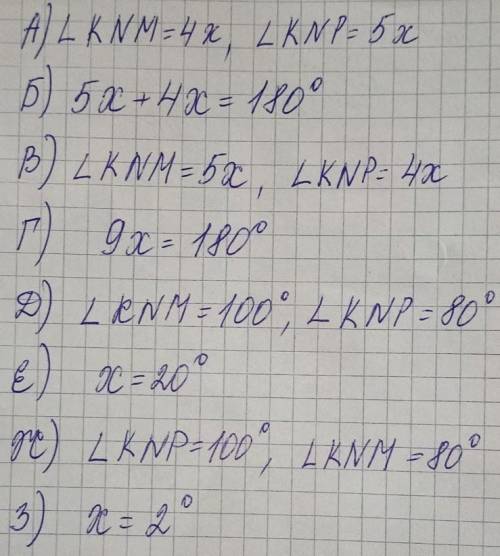 А) ∠KNM=4x, ∠KNP=5x
Б) 5x+4x=180°
В) ∠KNM=5x, ∠KNP=4x
Г) 9x=180°
Д) ∠KNM=100°, ∠KNP=80°
Є) x=20°
Ж) ∠KNP=100°, ∠KNM=80°
З) x=2°